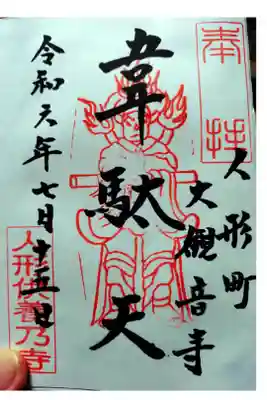 奉拝
人形町
大観音寺
韋駄天
令和元年七月十五日
人形供養乃寺